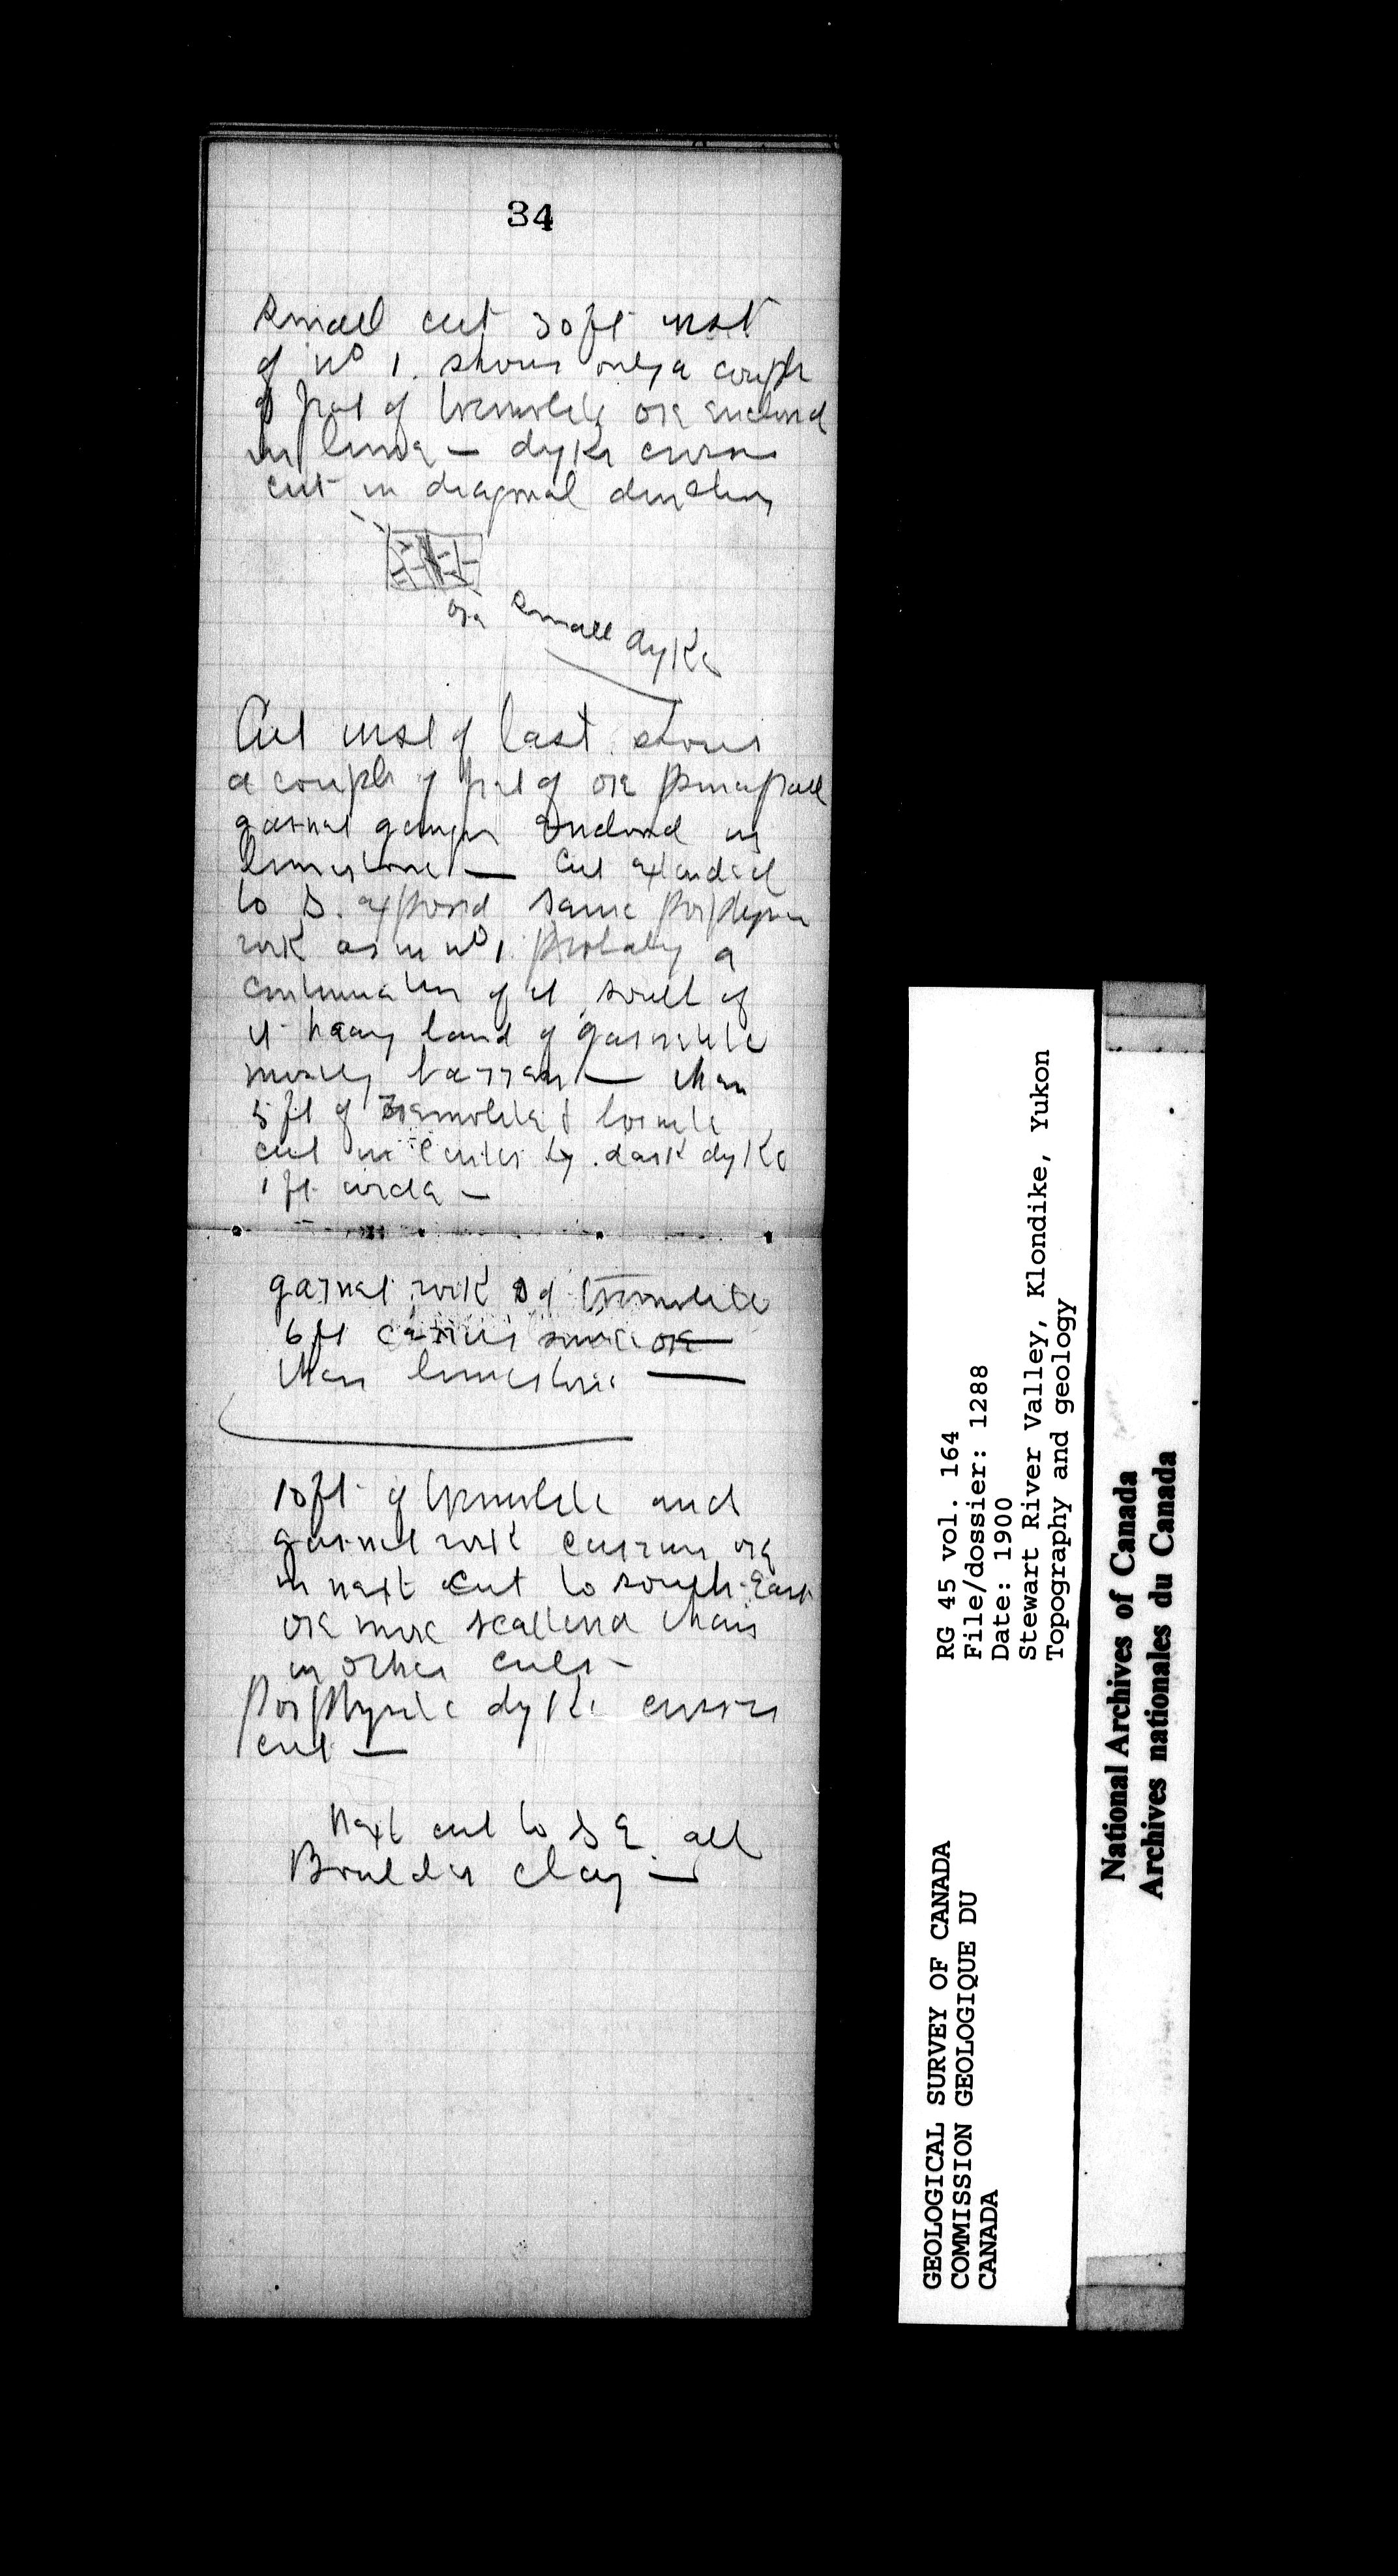 34
Small cut 30 ft west
of No 1. shows only a couple
of feet of tremolite ore enclosed
in lime — dyke crosses
cut in diagonal direction
ore small dyke
Cut west of last shows
a couple of feet of ore principally
garnet gangue enclosed in
limestone — Cut extended
to S. exposed same porphyry
rock as in No 1. Probably a
continuation of it, south of
it heavy band of garnetite
mostly barren — then
5 ft of tremolite & bornite
cut in center by dark dyke
1 ft wide —
garnet rock & tremolite
6 ft carries some ore
then limestone —
10 ft of tremolite and
garnet rock carrying ore
in next cut to south East
ore more scattered than
in other cuts —
Porphyrite dyke crosses
cut —
Next cut to S E. all
Boulder clay —
GEOLOGICAL SURVEY OF CANADA
COMMISSION GEOLOGIQUE DU
CANADA
RG 45 vol. 164
File/dossier: 1288
Date: 1900
Stewart River Valley, Klondike, Yukon
Topography and geology
National Archives of Canada
Archives nationales du Canada